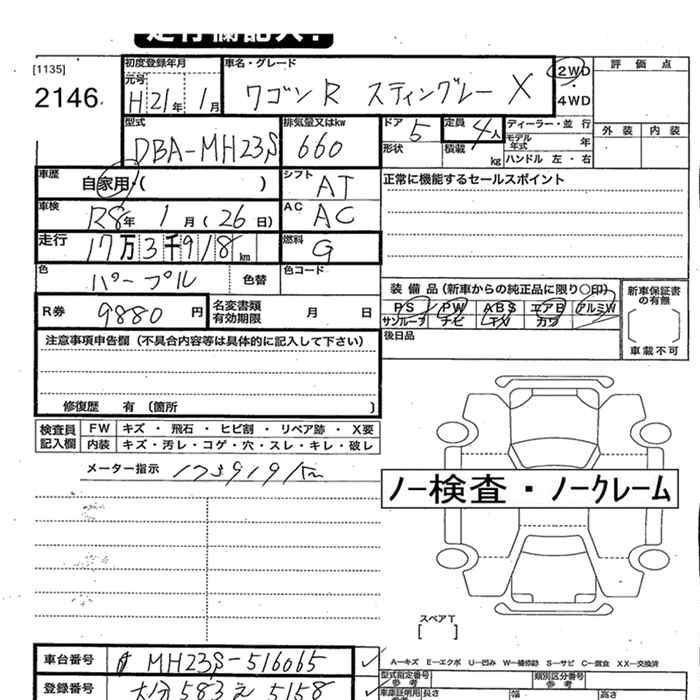 走行欄記入!
[1135]
2146
初度登録年月
元号
H 21年 1月
車名・グレード
ワゴンR スティングレー X
2WD
・
4WD
評価点
外装 内装
型式
DBA-MH23S
排気量又はkw
660
ドア 5
形状
定員 4人
積載 kg
ディーラー・並行
モデル年式 年
ハンドル 左・右
車歴
自家用・( )
シフト
AT
正常に機能するセールスポイント
車検
R8年 1月(26日)
AC
AC
走行
17万3千918km
燃料
G
色
パープル
色替
色コード
R券
9880円
名変書類有効期限 月 日
装備品(新車からの純正品に限り○印)
PS PW ABS エアB アルミW
サンルーフ ナビ TV カワ
後日品
新車保証書の有無
[ ]
車載不可
注意事項申告欄(不具合内容等は具体的に記入して下さい)
修復歴 有 〔箇所 〕
検査員記入欄
FW キズ・飛石・ヒビ割・リペア跡・X要
内装 キズ・汚レ・コゲ・穴・スレ・キレ・破レ
メーター指示 173919km
ノー検査・ノークレーム
スペアT
[ ]
A-キズ E-エクボ U-凹み W-補修跡 S-サビ C-腐食 XX-交換済
車台番号 MH23S-516065
登録番号 大分583え5158
型式指定番号
参考
類別区分番号
参考
車庫証明用
参考
長さ 幅 高さ